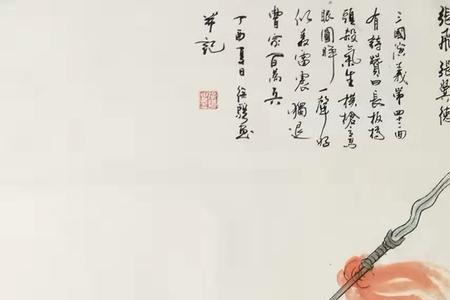 張飛張翼德
三國演義第四十二回
有詩贊曰長板橋
頭殺氣生橫槍立馬
眼圓睜一聲好
似轟雷震獨退
曹家百萬兵
丁酉夏日徐画
并記